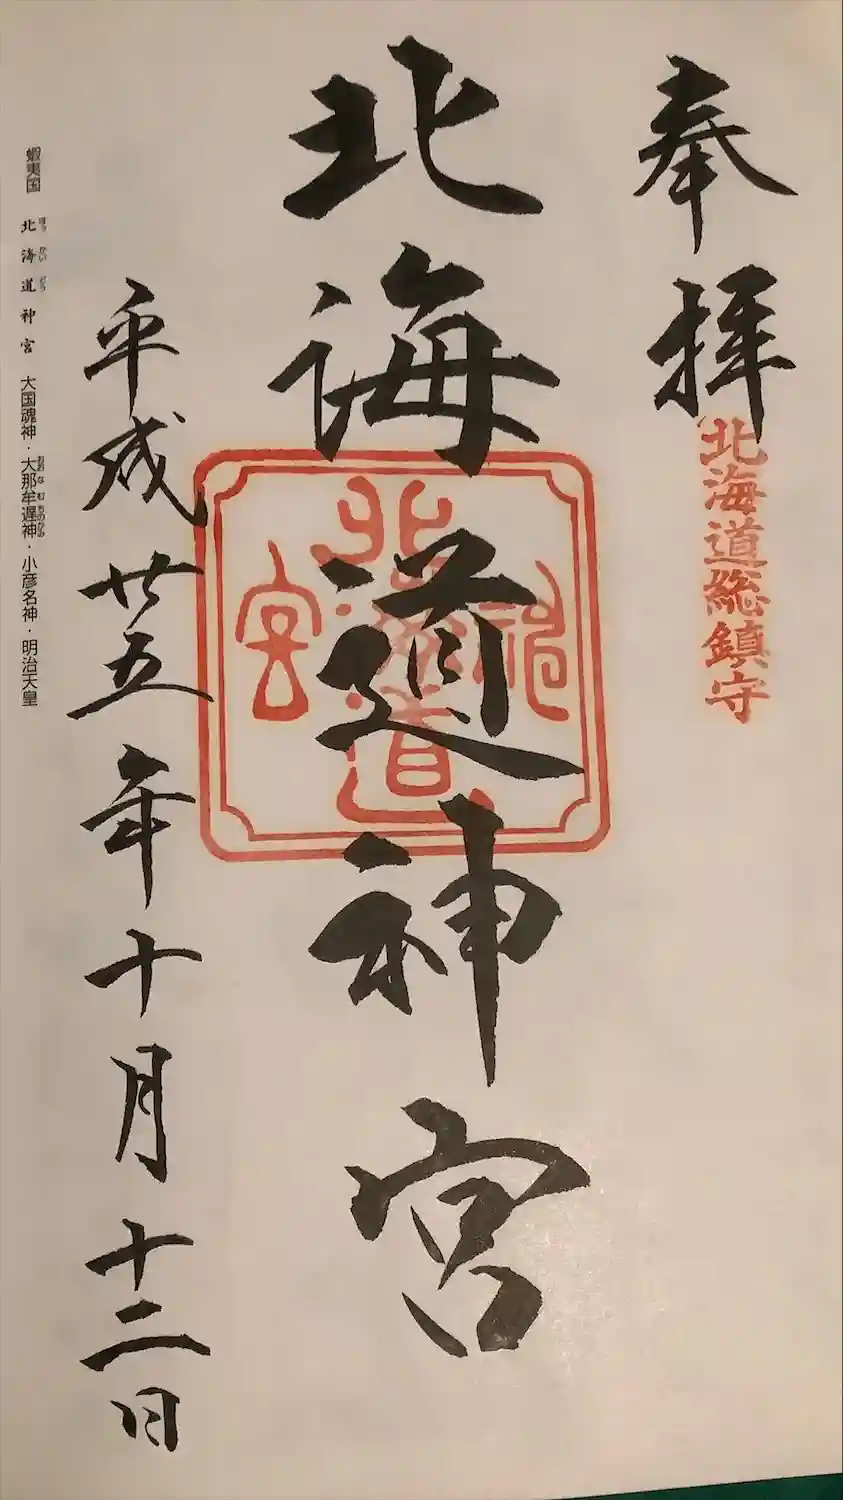 奉拝
北海道総鎮守
北海道神宮
北海道神宮
平成廿五年十月十二日
蝦夷国 北海道神宮 大国魂神・大那牟遅神・小彦名神・明治天皇